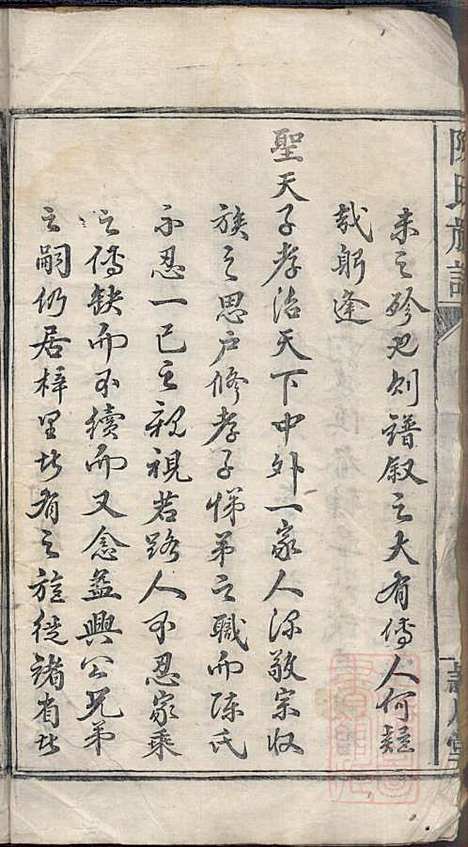 未之殄也則譜叙之大有傳人何疑
哉躬逢
聖天子孝治天下中外一家人深敬宗收
族之思户修孝子悌弟之職而陈氏
不忍一已之親視若路人不忍家乘
之傳缺而不續而又念益興公兄弟
之嗣仍居梓里者有之旋徙諸有者
陳氏族譜